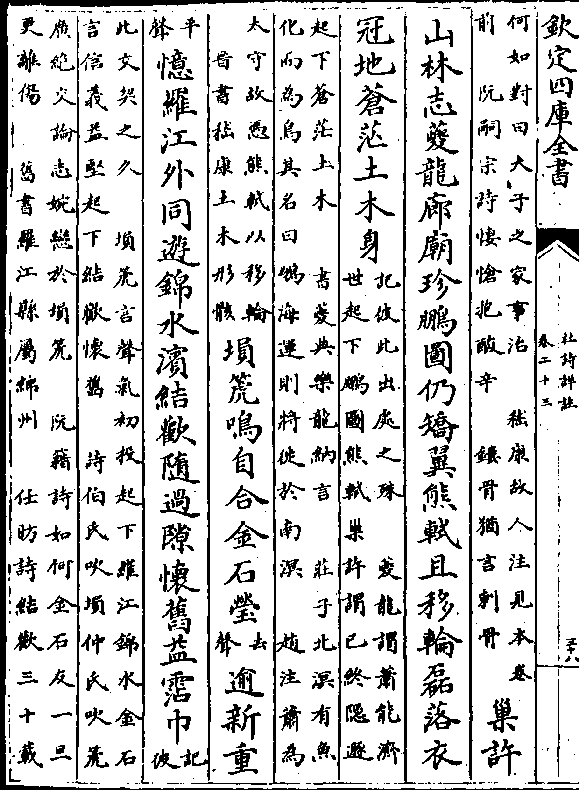 欽定四庫全書
杜詩詳註
卷二十三
五十八
何如對曰夫子之家事治 嵇康故人注見本卷
前 阮嗣宗詩悽愴非酸辛 鏤骨猶言刺骨
巢許
山林志夔龍廊廟珍鵬圖仍矯翼熊軾且移輪磊落衣
冠地蒼茫土木身
記彼此出處之殊 夔龍謂蕭能濟
世起下鵬圖熊軾 巢許謂已終隱遯
起下蒼茫土木 書夔典樂龍納言 莊子北溟有魚
化而為鳥其名曰鵬海運則將徙於南溟 趙注蕭為
太守故憑熊軾以移輪
晉書嵇康土木形骸
塤箎鳴自合金石瑩
去
聲
逾新重
平
聲
憶羅江外同遊錦水濱結歡隨過隙懷舊益霑巾
記
彼
此交契之久 塤箎言聲氣初投起下羅江錦水金石
言信義益堅起下結歡懷舊 詩伯氏吹塤仲氏吹箎
廣絶交論志婉戀於塤箎 阮籍詩如何金石交一旦
更離傷 舊書羅江縣屬綿州 任昉詩結歡三十載